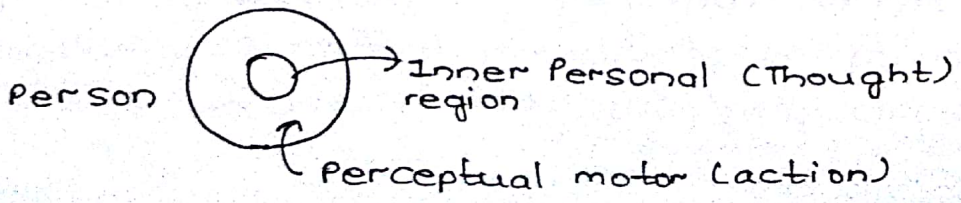 Person
Inner Personal (Thought)
region
Perceptual motor (action)